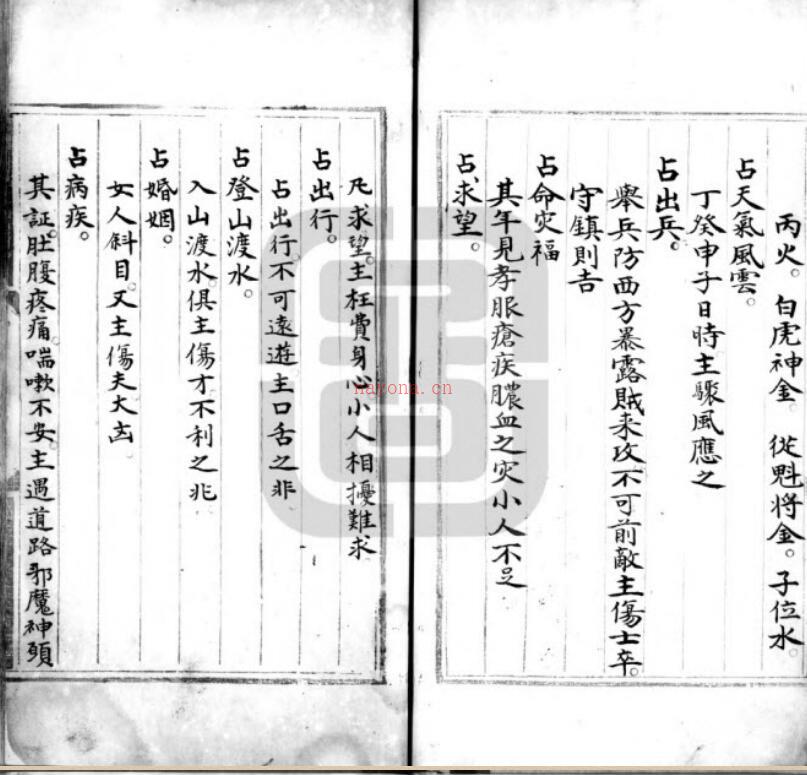 丙火。白虎神金 從魁將金。子位水。
占天氣風雲。
丁癸申子日時主驟風應之
占出兵。
舉兵防西方暴露賊来攻不可前敵主傷士卒。
守鎮則吉
占命灾福
其年見孝服瘡疾膿血之灾小人不足
占求望。
凡求望。主枉費身心小人相擾難求
占出行。
占出行不可遠遊主口舌之非
占登山渡水。
入山渡水。俱主傷才不利之兆
占婚姻。
女人斜目。又主傷夫大凶
占病疾。
其証。肚腹疼痛。喘嗽不安。主遇道路邪魔神頭
nayona.cn